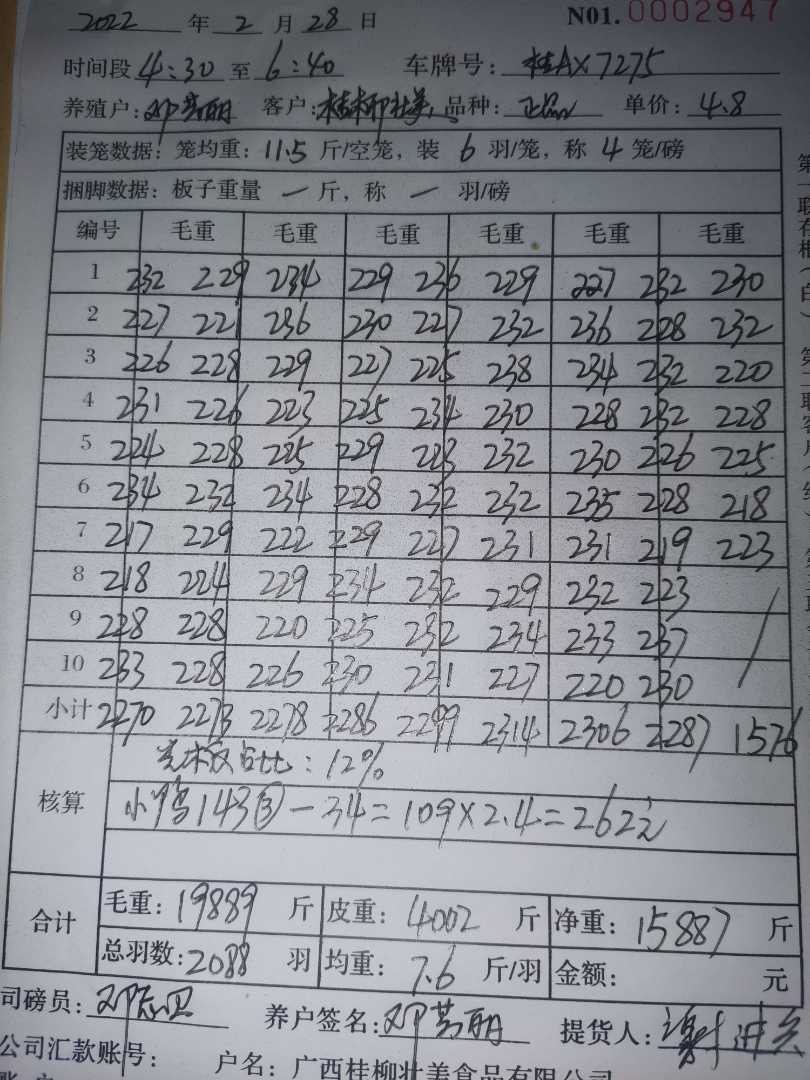 2022 年 2 月 28 日 N01. 0002947
时间段 4:30 至 6:40 车牌号: 桂AX7275
养殖户: 邓芳丽 客户: 桂柳壮美 品种: 正品 单价: 4.8
装笼数据: 笼均重: 11.5 斤/空笼, 装 6 羽/笼, 称 4 笼/磅
捆脚数据: 板子重量 一 斤, 称 一 羽/磅
编号 毛重 毛重 毛重 毛重 毛重 毛重
1 232 229 234 229 236 229 227 232 230
2 227 221 236 230 227 232 236 228 232
3 226 228 229 227 225 238 234 232 220
4 231 226 223 225 234 230 228 232 228
5 224 228 225 229 223 232 230 226 225
6 234 232 234 228 232 232 235 228 218
7 217 229 222 229 227 231 231 219 223
8 218 224 229 234 232 229 232 223
9 228 228 220 225 232 234 233 237
10 233 228 226 230 231 227 220 230
小计 2270 2273 2278 2286 2299 2314 2306 2287 1576
核算
占比: 12%
小鸭143只-34=109×2.4=262元
合计 毛重: 19889 斤 皮重: 4002 斤 净重: 15887 斤
总羽数: 2088 羽 均重: 7.6 斤/羽 金额: 元
司磅员: 邓 养户签名: 邓芳丽 提货人: 谢进
公司汇款账号: 户名: 广西桂柳壮美食品有限公司